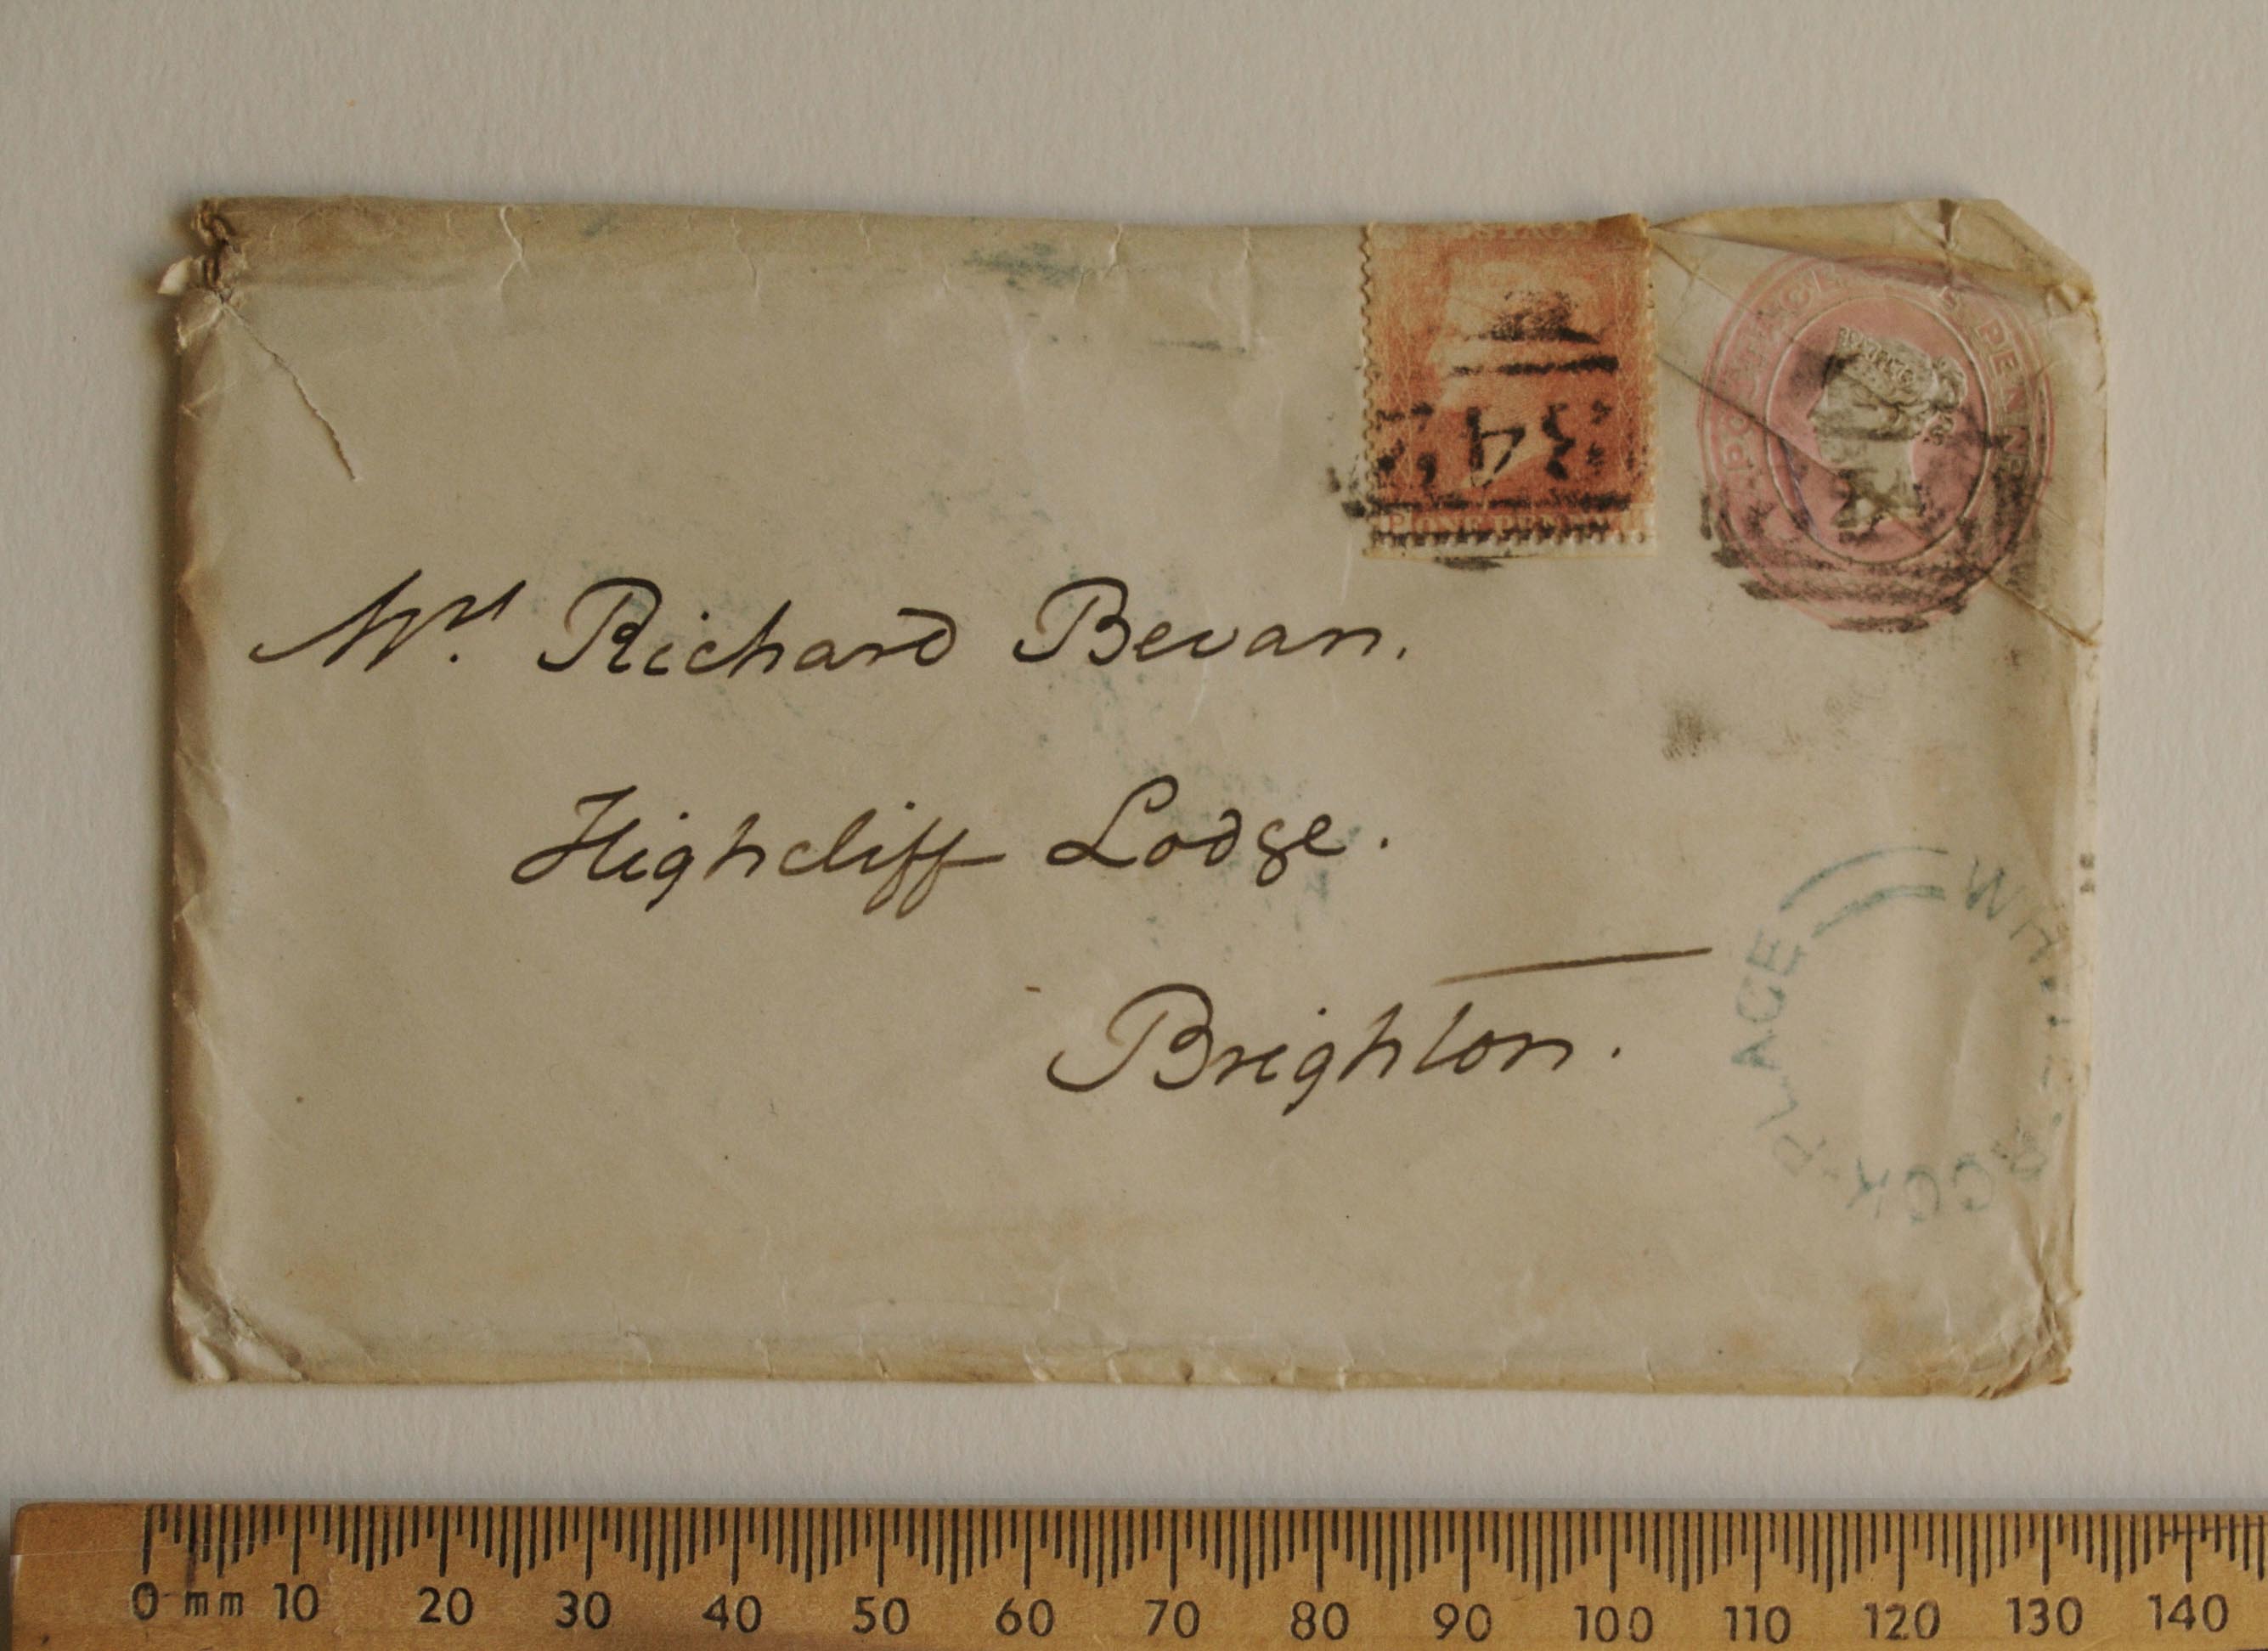 POSTAGE ONE PENNY
34
ONE PENNY
Mrs. Richard Bevan.
Highcliff Lodge.
Brighton.
PLACE
0 mm 10 20 30 40 50 60 70 80 90 100 110 120 130 140